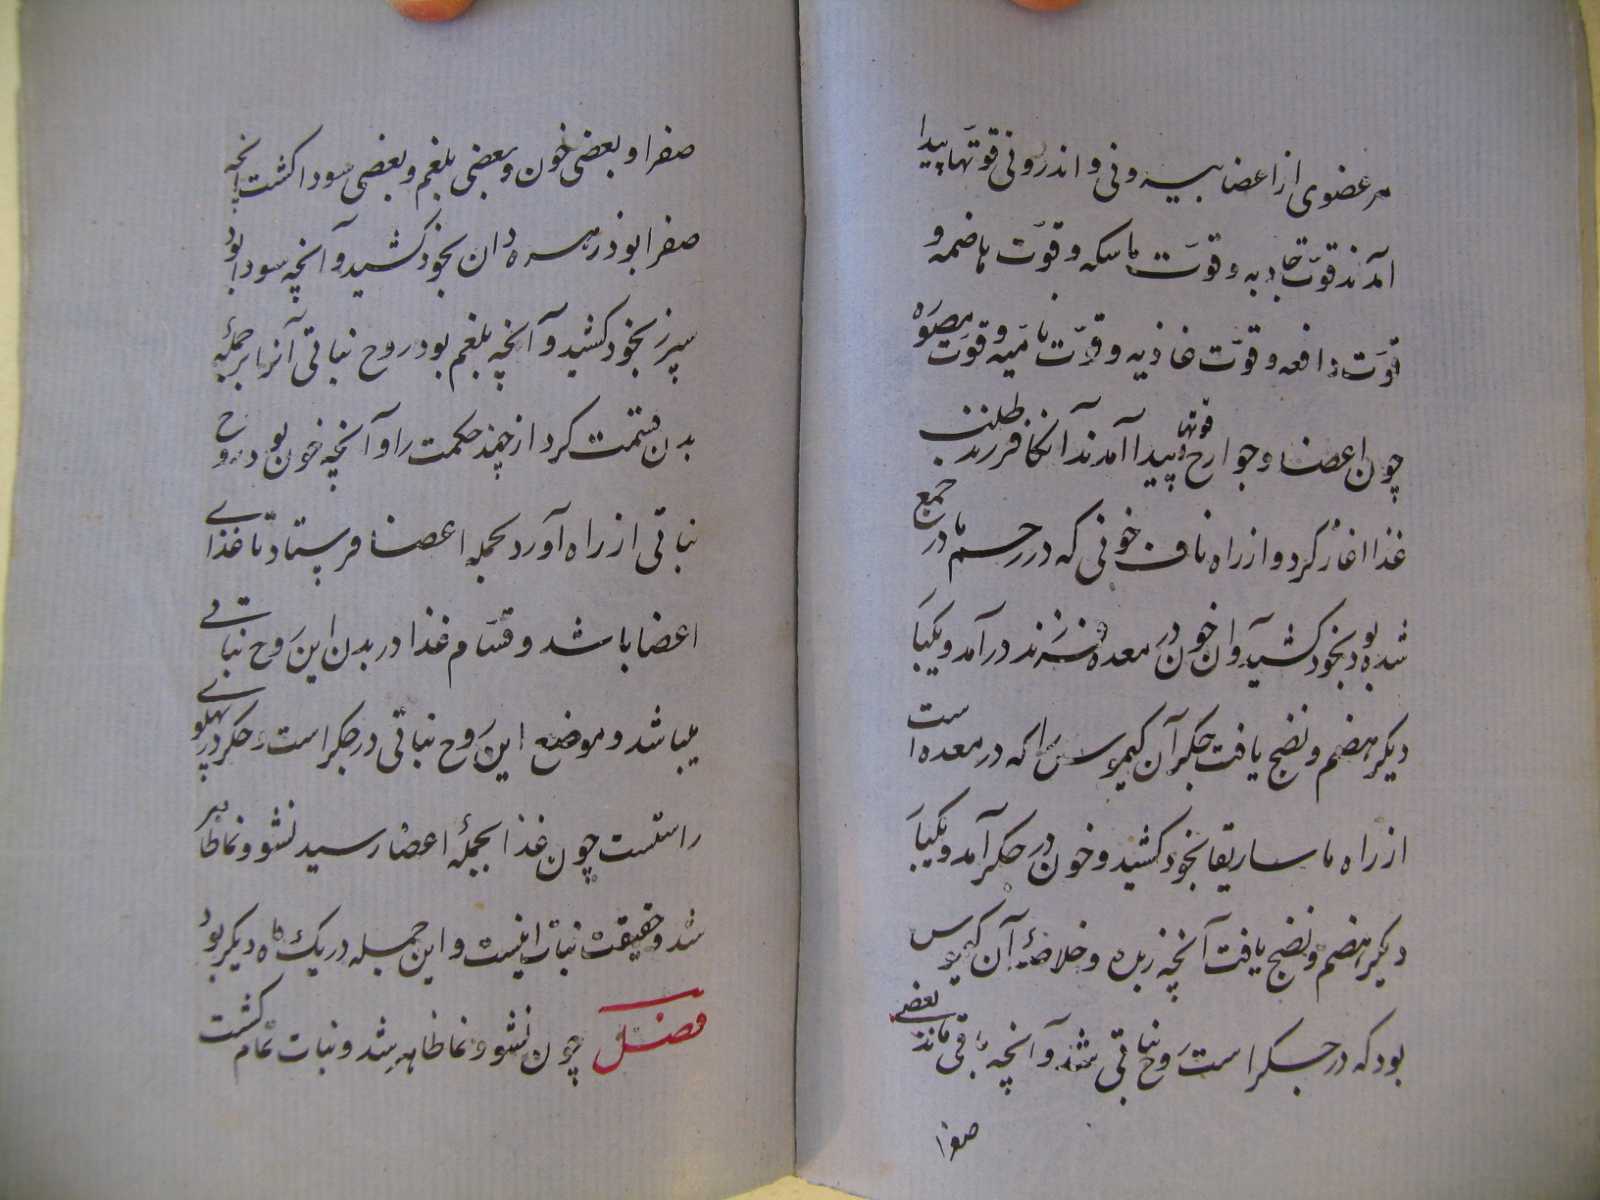 هر عضوی از اعضا بیرونی و اندرونی قوتها پیدا
آمدند قوّت جاذبه و قوّت ماسکه و قوّت هاضمه و
قوّت دافعه و قوّت غاذیه و قوّت نامیه و قوّت مصوّره
چون اعضا و جوارح و قوتها پیدا آمدند آنکا فرزند طلب
غذا اغاز کرد و از راه ناف خونی که در رحم مادر جمع
شده بود بخود کشید و آن خون در معده فرزند درآمد و یکبار
دیکر هضم و نضج یافت جکر آن کیموس را که در معده است
از راه ماساریقا بخود کشید و خون در جکر آمد و یکبار
دیکر هضم و نضج یافت آنچه زبده و خلاصهٔ آن کیموس
بود که در جکر است روح نباتی شد و آنچه باقی ماند بعضی
صفرا
صفرا و بعضی خون و بعضی بلغم و بعضی سودا کشت آنچه
صفرا بود زهره آن بخود کشید و آنچه سودا بود
سپرز بخود کشید و آنچه بلغم بود روح نباتی آنرا بر جملهٔ
بدن قسمت کرد از چند حکمت را و آنچه خون بود روح
نباتی از راه آورده بجمله اعضا فرستاد تا غذای
اعضا باشد و قسّام غذا در بدن این روح نباتی
میباشد و موضع این روح نباتی در جکر است و جکر در پهلوی
راستست چون غذا بجملهٔ اعضا رسید نشو و نما ظاهر
شد و حقیقت نبات اینست و این جمله در یک ماه دیکر بود
فصل چون نشو و نما ظاهر شد و نبات تمام کشت